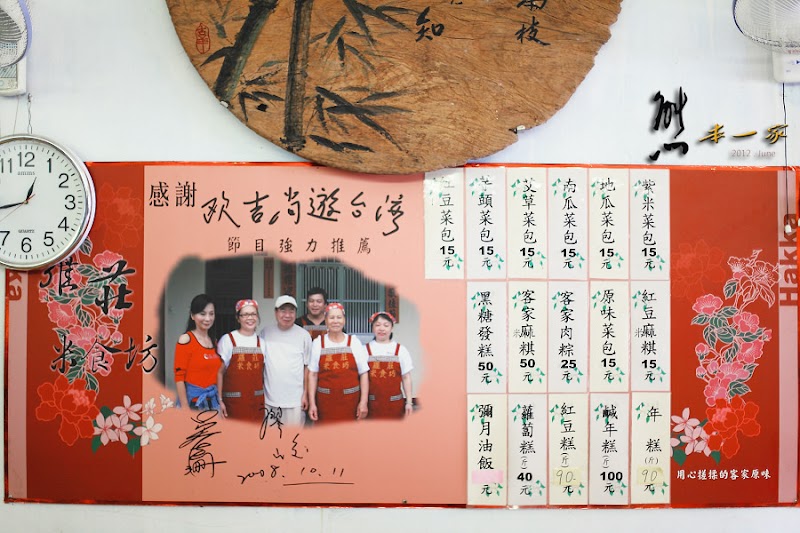 南枝
知
熊本一家
2012 June
感謝
歐吉尚遊台灣
節目強力推薦
雅莊
米食坊
2008.10.11
紫米菜包 15元
地瓜菜包 15元
南瓜菜包 15元
艾草菜包 15元
芋頭菜包 15元
紅豆菜包 15元
紅豆麻糬 15元
原味菜包 15元
客家肉粽 25元
客家麻糬 50元
黑糖發糕 50元
年糕(斤) 90元
鹹年糕 100元
紅豆糕(斤) 90元
蘿蔔糕(斤) 40元
彌月油飯 元
Hakka
用心搓揉的客家原味
12 1 2 3 4 5 6 7 11